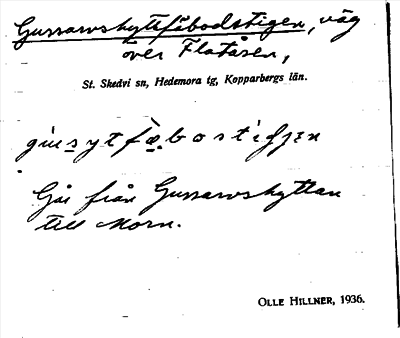 Gussarvshyttfäbodstigen, väg
över Flatåsen,
St. Skedvi sn, Hedemora tg, Kopparbergs län.
Går från Gussarvshyttan
till Morn.
OLLE HILLNER, 1936.